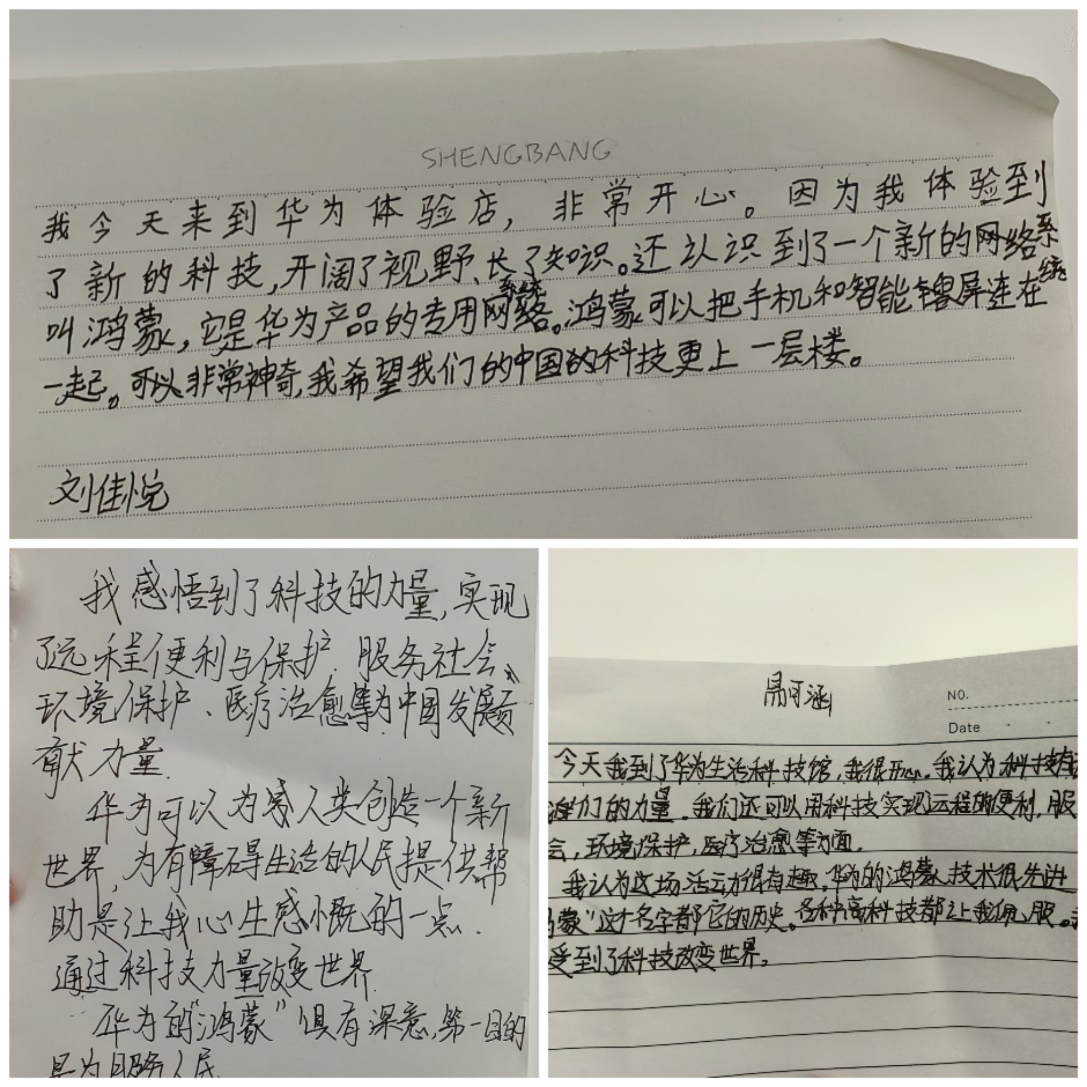 SHENGBANG
我今天来到华为体验店，非常开心。因为我体验到
了新的科技,开阔了视野、长了知识。还认识到了一个新的网络系统
叫鸿蒙，它是华为产品的专用网络系统。鸿蒙可以把手机和智能屏连在
一起。可以非常神奇,我希望我们的中国的科技更上一层楼。
刘佳悦
我感悟到了科技的力量,实现
了远程便利与保护、服务社会、
环境保护、医疗治愈等为中国发展贡
献力量.
华为可以为人类创造一个新
世界,为有障碍生活的人民提供帮
助是让我心生感慨的一点.
通过科技力量改变世界.
华为的"鸿蒙"俱有深意,第一目的
是为服务人民
易可涵
NO.
Date
今天我到了华为生活科技馆,我很开心.我认为科技有
们的力量.我们还可以用科技实现远程的便利,服
会,环境保护,医疗治愈等方面.
我认为这场活动很有趣,华为的鸿蒙技术很先进
蒙"这个名字都它的历史。各种高科技都让我佩服。
受到了科技改变世界。